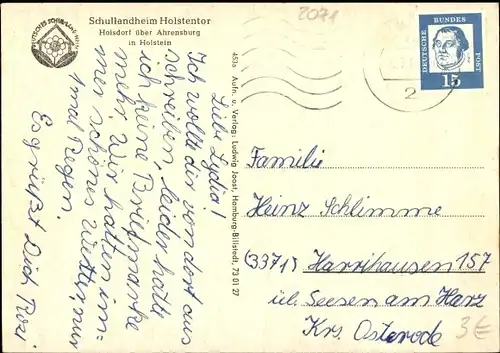 DEUTSCHES SCHULLANDHEIM
Schullandheim Holstentor
Hoisdorf über Ahrensburg
in Holstein
2071
DEUTSCHE BUNDES POST
15
2
453a Aufn. u. Verlag: Ludwig Joost, Hamburg-Billstedt, 73 01 27
Liebe Lydia!
Ich wollte dir von dort aus
schreiben, leider hatt
ich keine Briefmarke
mehr. Wir hatten im=
mer schönes Wetter, nur
1 mal Regen.
Es grüßt Dich Rosi
Familie
Heinz Schlimme
(3371) Harrihausen 157
üb. Seesen am Harz
Krs. Osterode
3€